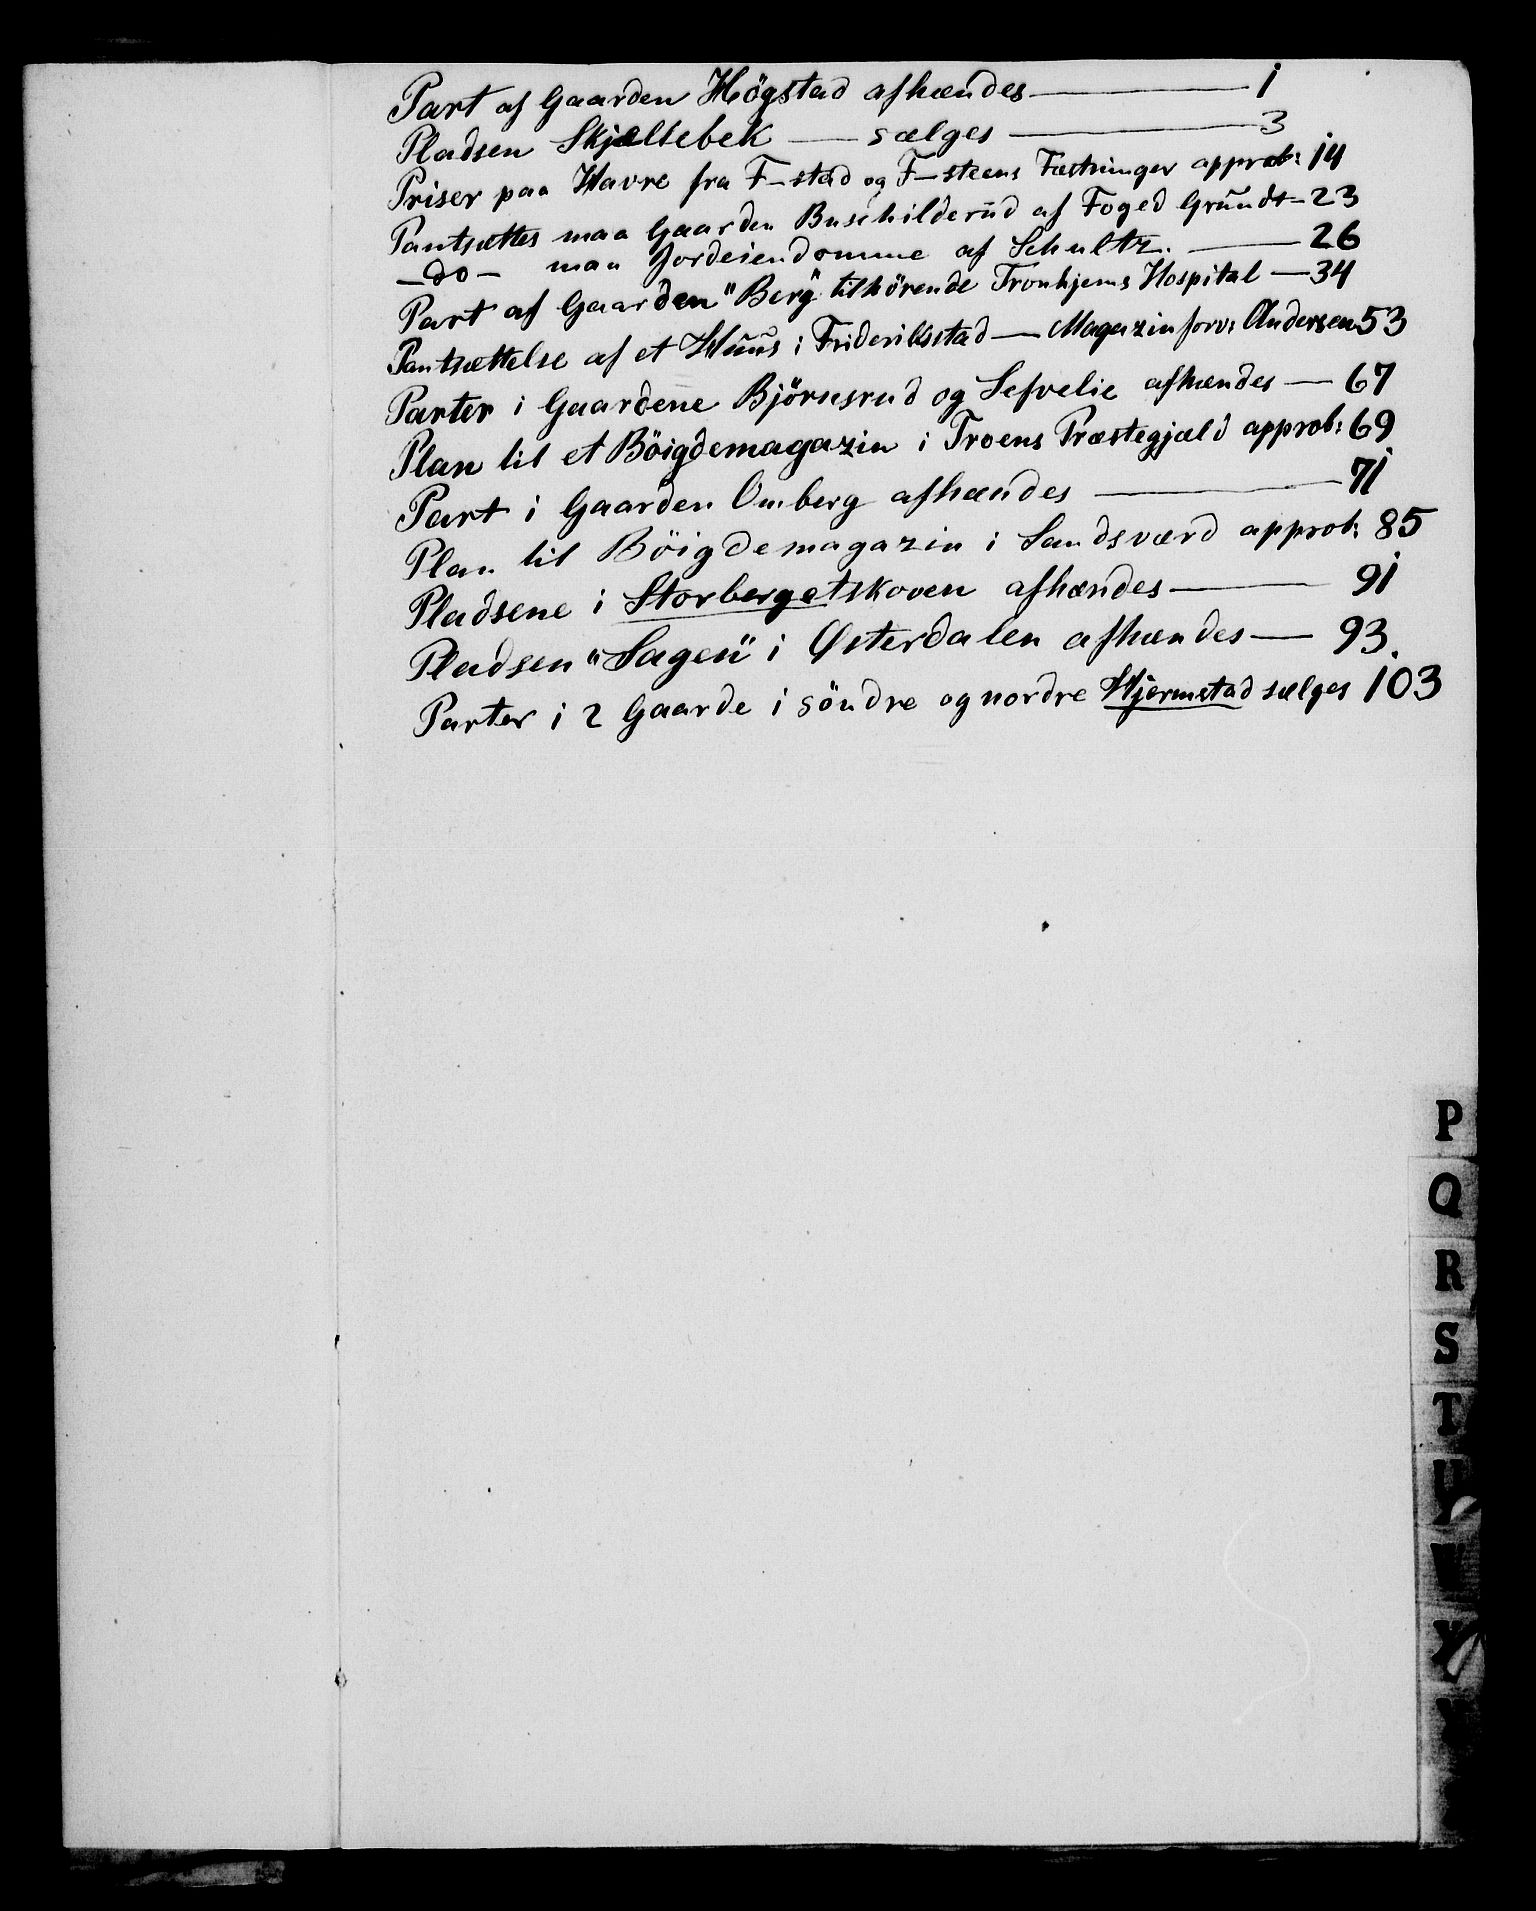 Part af Gaarden Högstad afhændes — 1
Pladsen Skjellebek — sælges — 3
Priser paa Havre fra F-stad og F-steens Fæstninger approb: 14
Pantsættes maa Gaarden Buschilderud af Foged Grundt — 23
— do — maa Jordeiendomme af Schultz. — 26
Part af Gaarden "Berg" tilhörende Tronhjems Hospital — 34
Pantsættelse af et Huus i Frideriksstad — Magazinforv: Andersen 53
Parter i Gaardene Björnsrud og Sefvelie afhændes — 67
Plan til et Böigdemagazin i Troens Præstegjæld approb: 69
Part i Gaarden Omberg afhændes — 71
Plan til Böigdemagazin i Sandsværd approb: 85
Pladsene i Storbergetskoven afhændes — 91
Pladsen "Sagen" i Østerdalen afhændes — 93.
Parter i 2 Gaarde i söndre og nordre Hjermstad sælges 103
P
Q
R
S
T